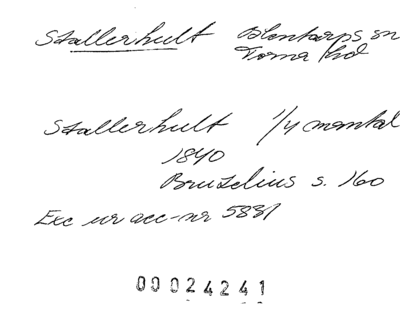 Stallerhult Blentarps sn
Torna hd
Stallerhult 1/4 mantal
1840
Bruzelius s. 160
Exc ur acc-nr 5881
00024241